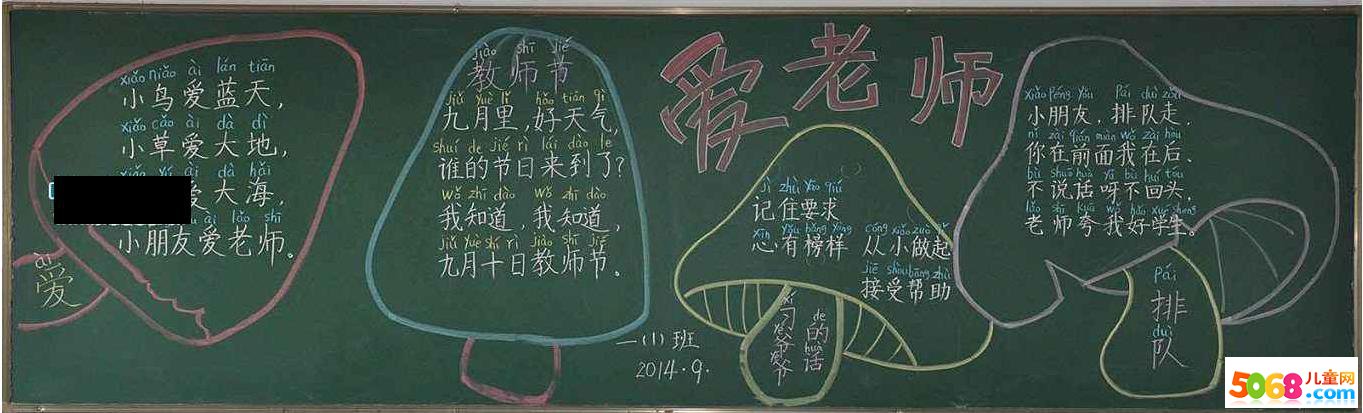 爱老师
xiǎo niǎo ài lán tiān
小鸟爱蓝天，
xiǎo cǎo ài dà dì
小草爱大地，
ài dà hǎi
爱大海，
ài lǎo shī
小朋友爱老师。
ài
爱
jiào shī jié
教师节
jiǔ yuè lǐ hǎo tiān qì
九月里，好天气，
shuí de jié rì lái dào le
谁的节日来到了？
wǒ zhī dào wǒ zhī dào
我知道，我知道，
jiǔ yuè shí rì jiào shī jié
九月十日教师节。
一(1)班
2014.9.
jì zhù yāo qiú
记住要求
xīn yǒu bǎng yàng
心有榜样
cóng xiǎo zuò qǐ
从小做起
jiē shòu bāng zhù
接受帮助
习爷爷
de huà
的话
xiǎo péng yǒu pái duì zǒu
小朋友，排队走，
nǐ zài qián miàn wǒ zài hòu
你在前面我在后、
bù shuō huà yā bù huí tóu
不说话呀不回头，
lǎo shī kuā wǒ hǎo xué shēng
老师夸我好学生。
pái
排
duì
队
5068儿童网
.com